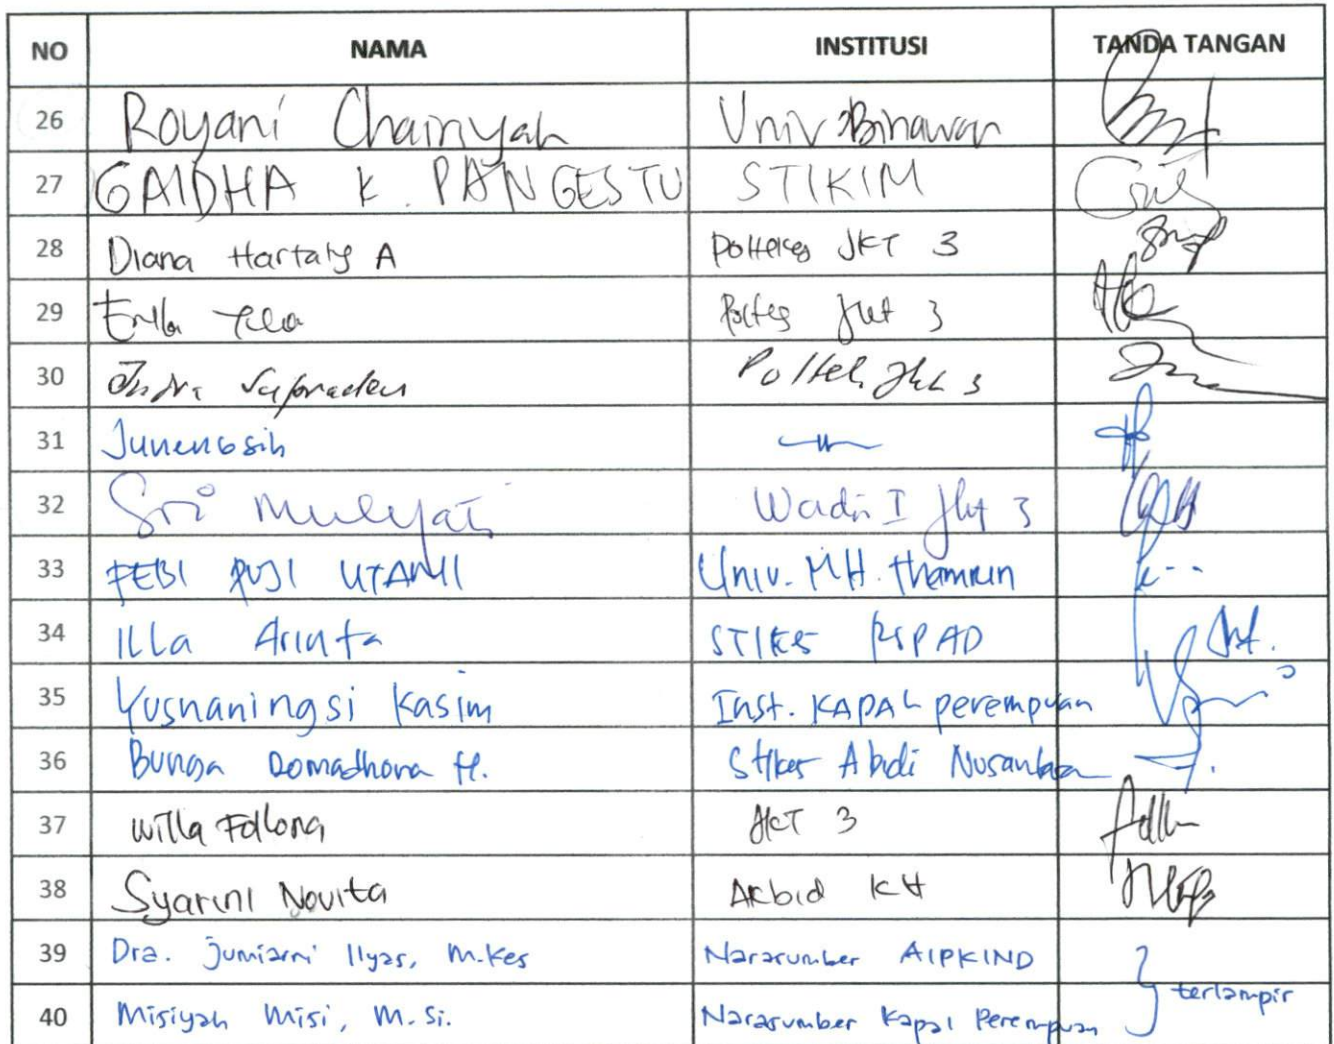 NO NAMA INSTITUSI TANDA TANGAN
26 Royani Chairiyah Univ Binawan
27 GAIDHA K. PANGESTU STIKIM
28 Diana Hartaty A Poltekes JKT 3
29 Erika Yulia Poltes Jkt 3
30 Indra Supradewi Poltek Jkt 3
31 Junengsih
32 Sri Mulyati Wadir I Jkt 3
33 FEBI PUJI UTAMI Univ. MH. Thamrin
34 Illa Arinta STIKES RSPAD
35 Yusnaningsi Kasim Inst. KAPAL perempuan
36 Bunga Romadhona H. Stikes Abdi Nusantara
37 Willa Follona JKT 3
38 Syarini Novita Akbid KH
39 Dra. Jumiarni Ilyas, M.Kes Narasumber AIPKIND
terlampir
40 Misiyah Misi, M.Si. Narasumber Kapal Perempuan